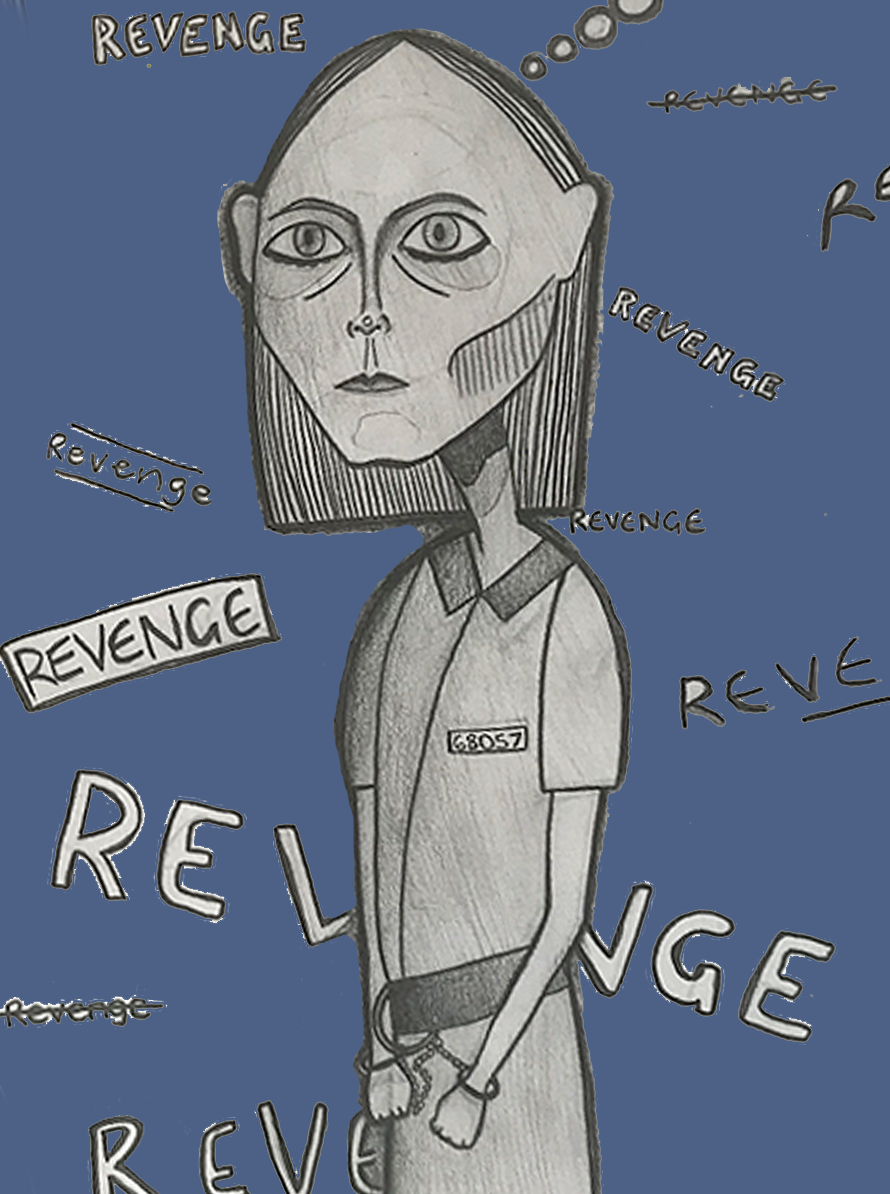 REVENGE
REVENGE
RE
REVENGE
Revenge
REVENGE
REVENGE
REVE
68057
REV NGE
Revenge
REVE